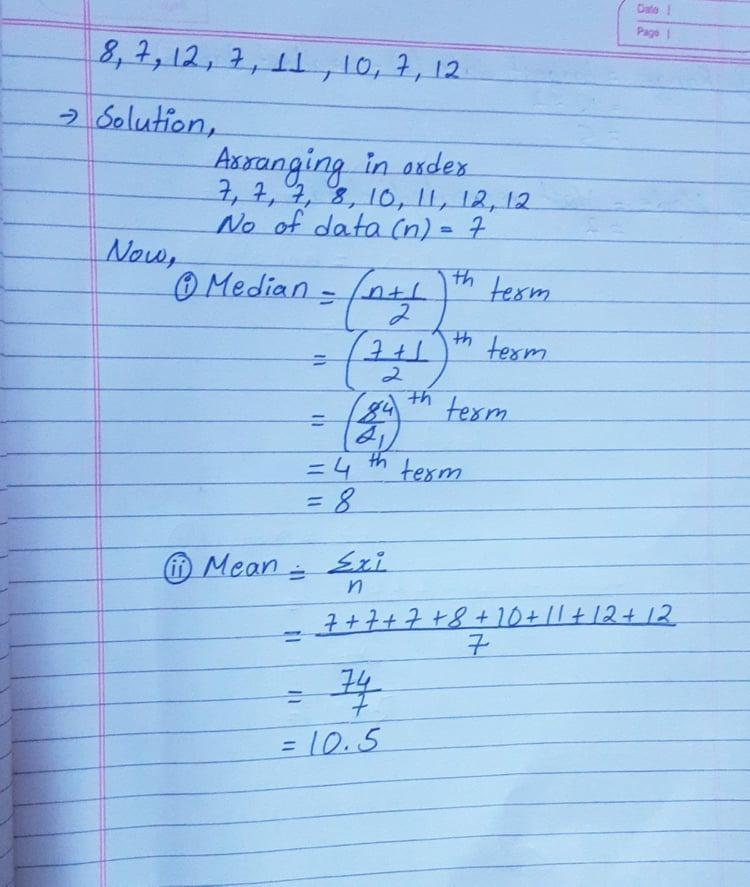 Date
Page
8, 7, 12, 7, 11, 10, 7, 12
→ Solution,
Arranging in order
7, 7, 7, 8, 10, 11, 12, 12
No of data (n) = 7
Now,
(i) Median = ((n+1)/2)th term
= ((7+1)/2)th term
= (8̶ 4/2̶ 1)th term
= 4th term
= 8
(ii) Mean = Σxi/n
= (7+7+7+8+10+11+12+12)/7
= 74/7
= 10.5